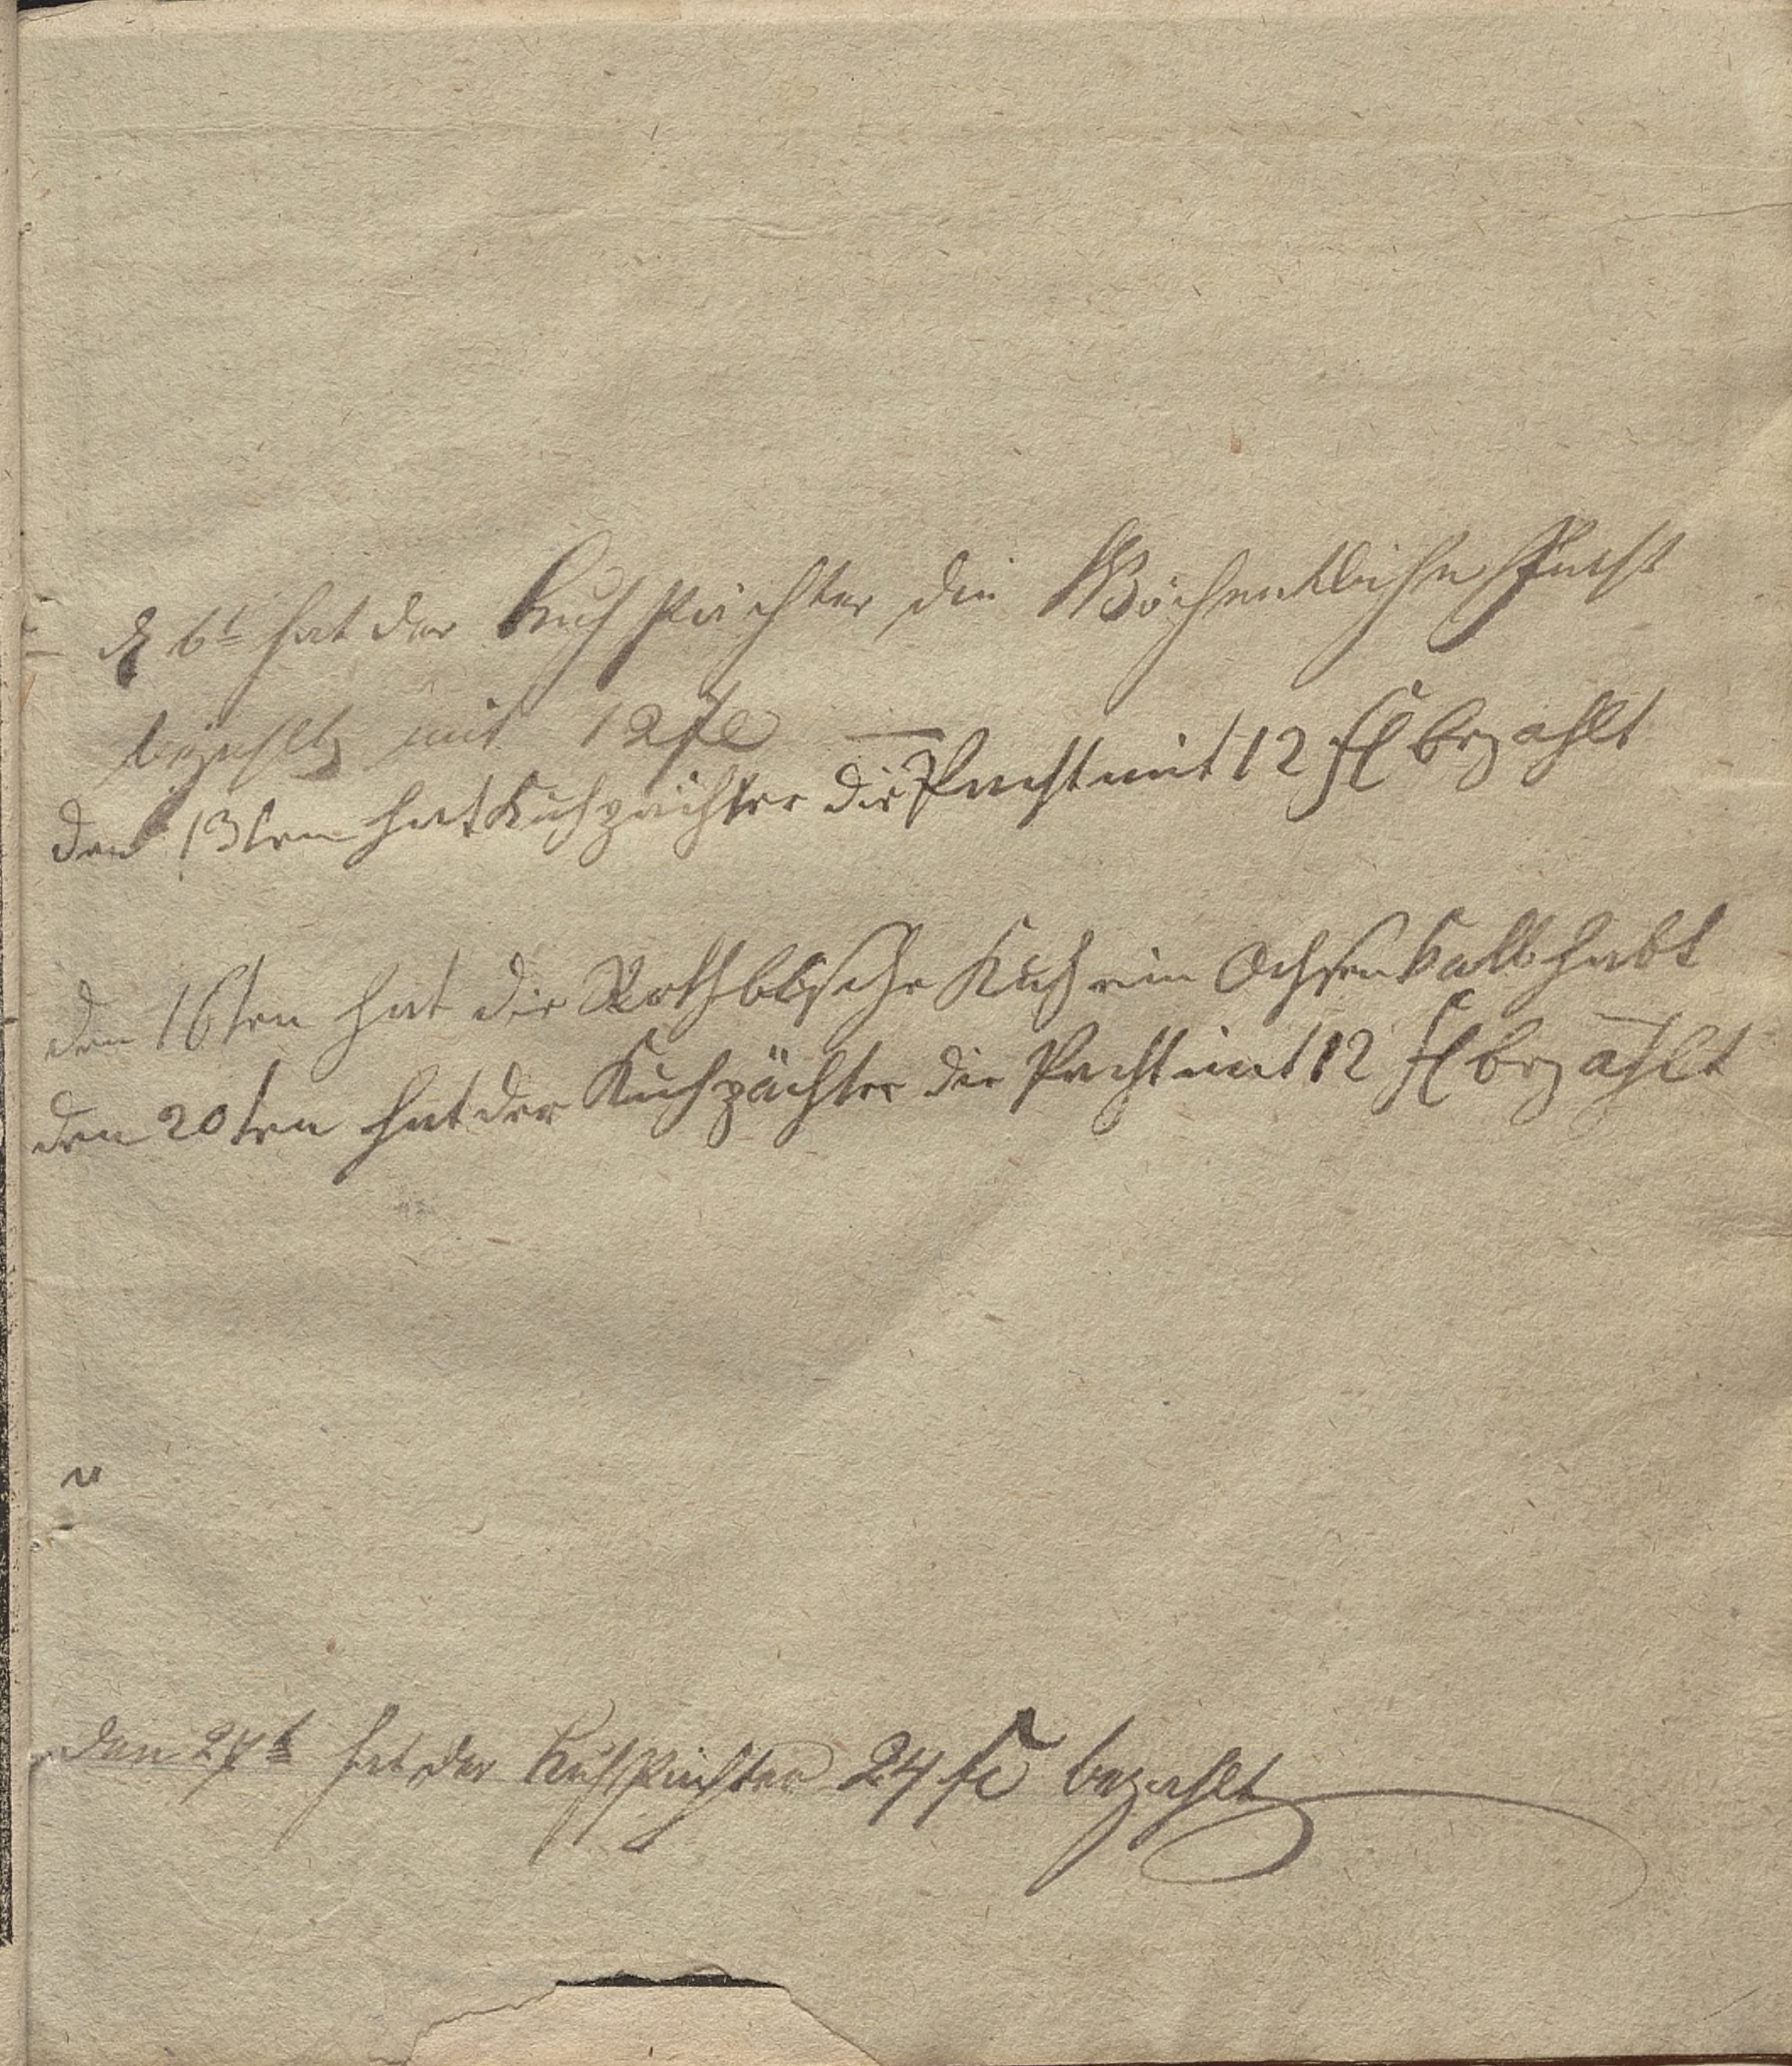 d 6t hat der Kuh Pächter die Wöchentliche Pacht
bezahlt mit 12 fl —
den 13ten hat Kuhpächter die Pacht mit 12 fl bezahlt
den 16ten hat die Kuh ein Ochsenkalb habt
den 20ten hat der Kuhpächter die Pacht mit 12 fl bezahlt
den 27t hat der Kuh Pächter 24 fl bezahlt